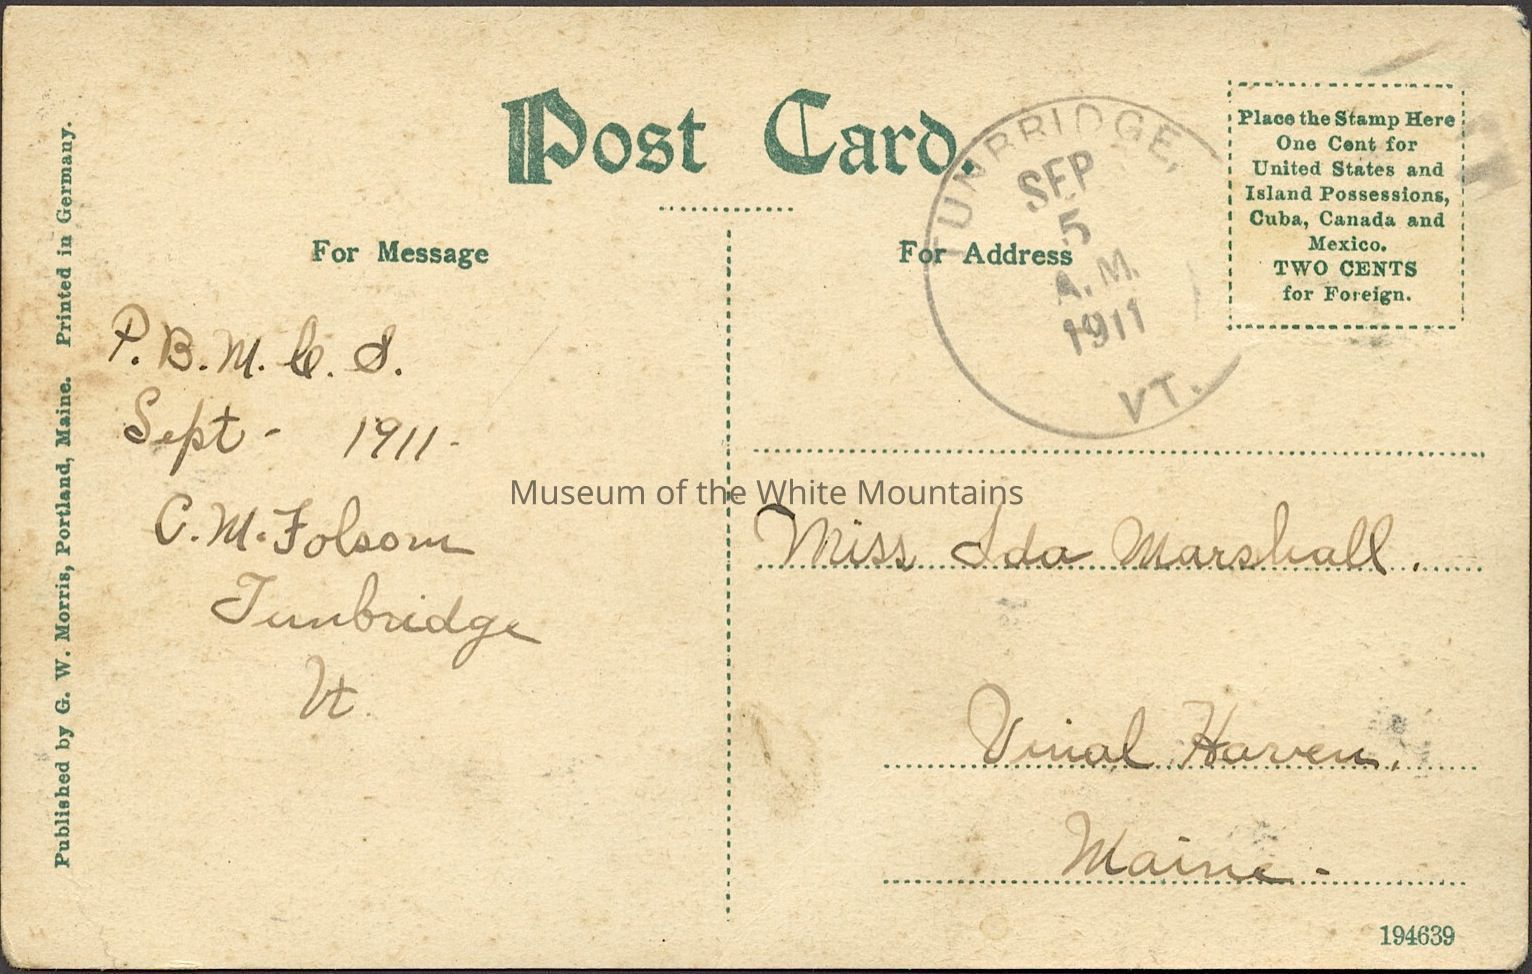 Post Card.
TUNBRIDGE,
SEP
5
A.M.
1911
VT.
Place the Stamp Here
One Cent for
United States and
Island Possessions,
Cuba, Canada and
Mexico.
TWO CENTS
for Foreign.
For Message
For Address
P. B. M. C. S.
Sept - 1911-
C. M. Folsom
Tunbridge
Vt.
Museum of the White Mountains
Miss Ida Marshall.
Vinal Haven,
Maine-
Published by G. W. Morris, Portland, Maine. Printed in Germany.
194639